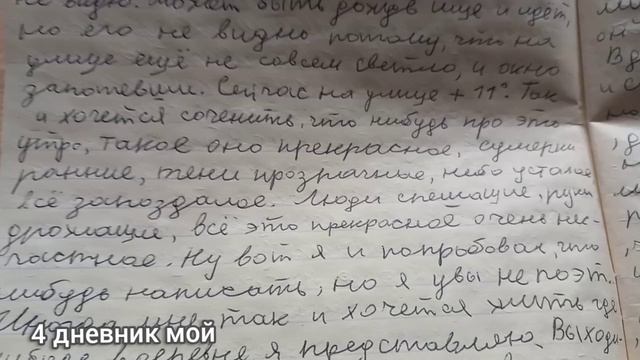 не видно. Может быть дождь ище и идёт,
но его не видно потому, что на
улице ещё не совсем светло, и окно
запотевши. Сейчас на улице + 11°. Так
и хочется соченить, что нибудь про это
утро, такое оно прекрасное, сумерки
ранние, тени прозрачные, небо усталое
всё запоздалое. Люди спешащие, руки
дрожащие, всё это прекрасное очень нес-
частное. Ну вот я и попробовал, что
нибудь написать, но я увы не поэт.
так и хочется жить где
я представляю. Выходи-
4 дневник мой